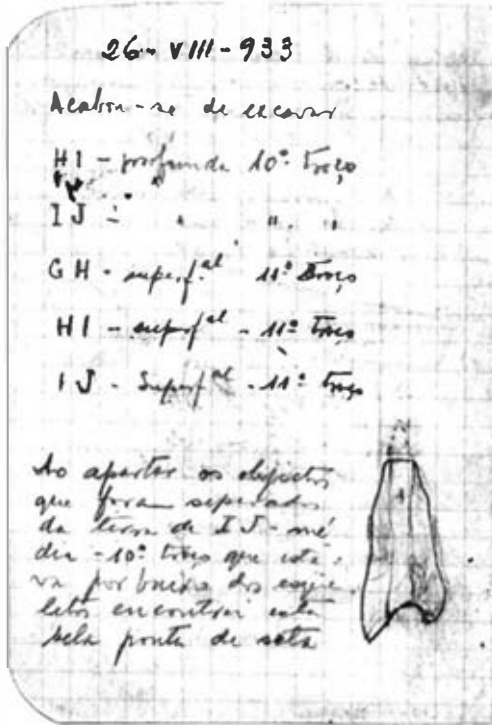 26-VIII-933
Acabou-se de excavar
HI - profunda 10º troço
IJ - " " "
GH - superf.al 11º troço
HI - superf.al - 11º troço
IJ - Superf.al - 11º troço
Ao apartar os objectos
que foram separados
da terra de IJ - mé
dia - 10º troço que esta-
va por baixo dos esque
letos encontrei esta
bela ponta de seta